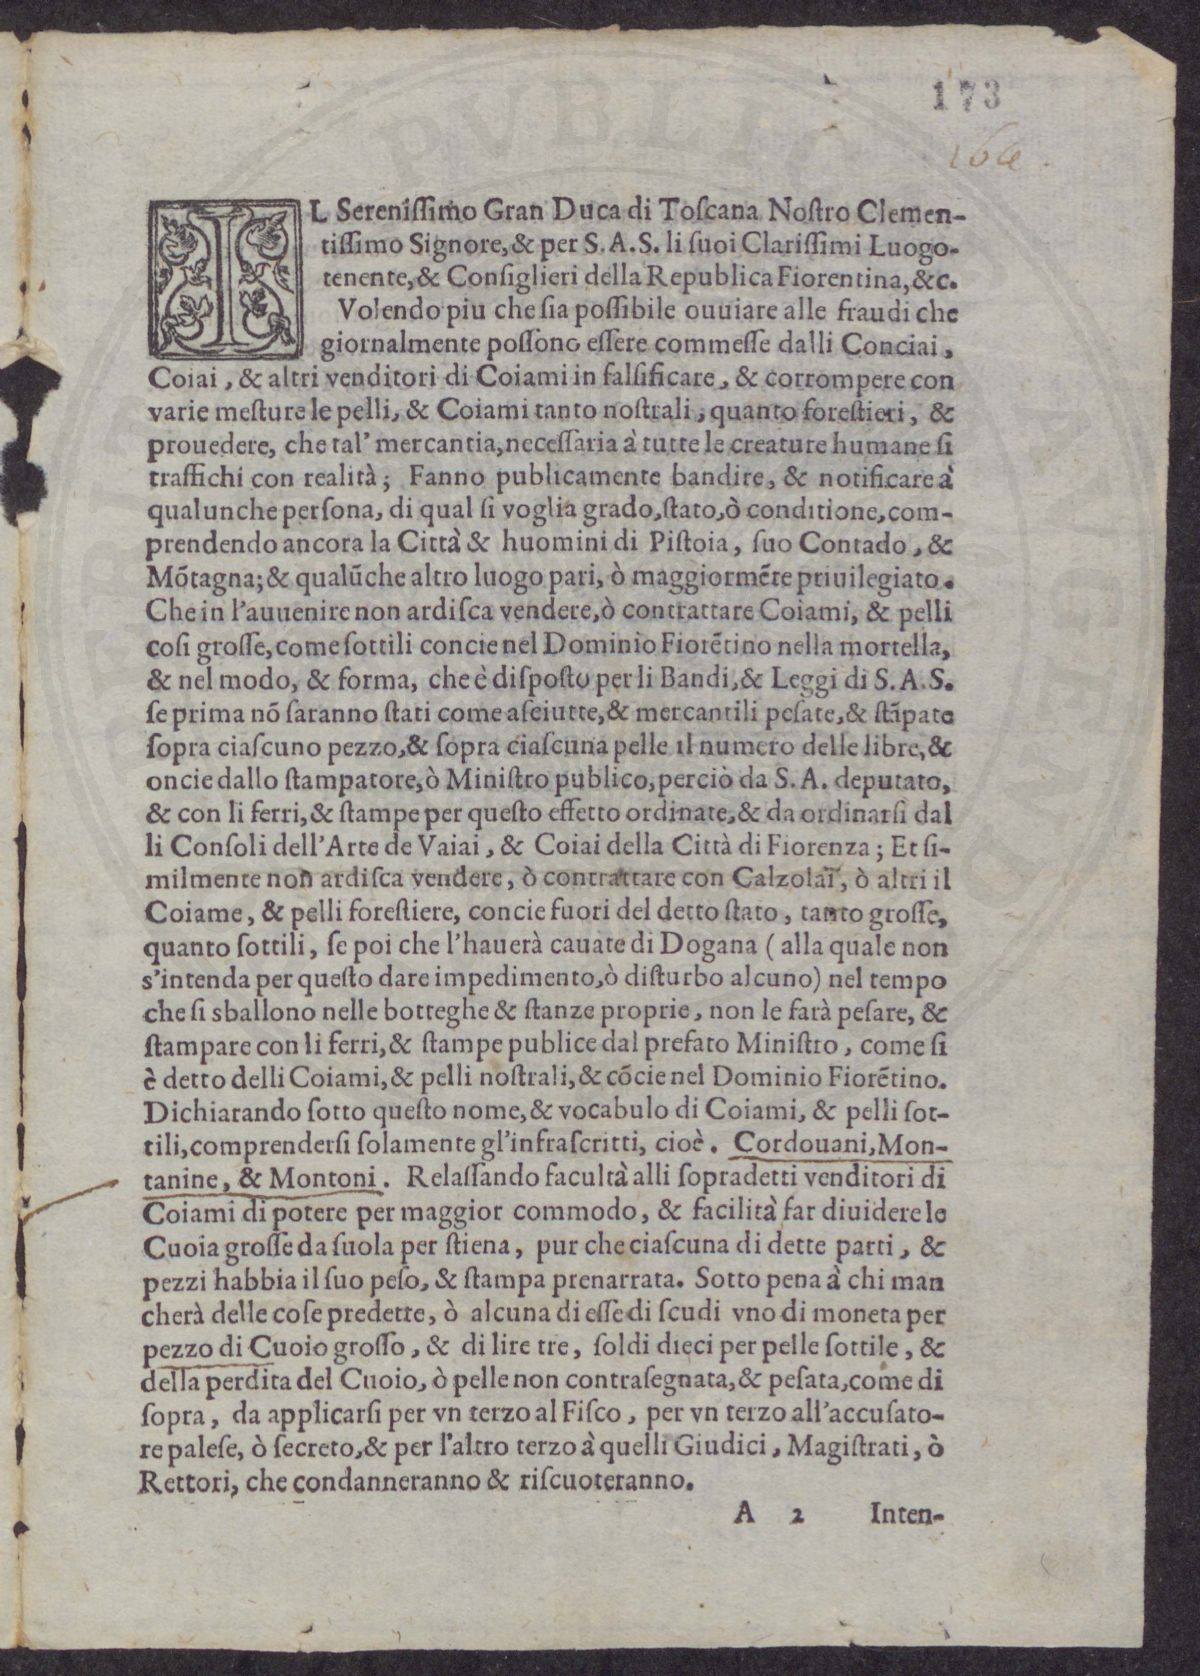 173
IL Sereniſſimo Gran Duca di Toſcana Noſtro Clemen-
tiſſimo Signore, & per S.A.S. li ſuoi Clariſſimi Luogo-
tenente, & Conſiglieri della Republica Fiorentina, &c.
Volendo piu che ſia poſſibile ouuiare alle fraudi che
giornalmente poſſono eſſere commeſſe dalli Conciai,
Coiai, & altri venditori di Coiami in falſificare, & corrompere con
varie meſture le pelli, & Coiami tanto noſtrali, quanto foreſtieri, &
prouedere, che tal' mercantia, neceſſaria à tutte le creature humane ſi
traffichi con realità; Fanno publicamente bandire, & notificare à
qualunche perſona, di qual ſi voglia grado, ſtato, ò conditione, com-
prendendo ancora la Città & huomini di Piſtoia, ſuo Contado, &
Mõtagna; & qualũche altro luogo pari, ò maggiormẽte priuilegiato.
Che in l'auuenire non ardiſca vendere, ò contrattare Coiami, & pelli
coſi groſſe, come ſottili concie nel Dominio Fiorẽtino nella mortella,
& nel modo, & forma, che è diſpoſto per li Bandi, & Leggi di S.A.S.
ſe prima nõ ſaranno ſtati come aſciutte, & mercantili peſate, & ſtãpate
ſopra ciaſcuno pezzo, & ſopra ciaſcuna pelle il numero delle libre, &
oncie dallo ſtampatore, ò Miniſtro publico, perciò da S.A. deputato,
& con li ferri, & ſtampe per queſto effetto ordinate, & da ordinarſi dal
li Conſoli dell'Arte de Vaiai, & Coiai della Città di Fiorenza; Et ſi-
milmente non ardiſca vendere, ò contrattare con Calzolai, ò altri il
Coiame, & pelli foreſtiere, concie fuori del detto ſtato, tanto groſſe,
quanto ſottili, ſe poi che l'hauerà cauate di Dogana (alla quale non
s'intenda per queſto dare impedimento, ò diſturbo alcuno) nel tempo
che ſi sballono nelle botteghe & ſtanze proprie, non le farà peſare, &
ſtampare con li ferri, & ſtampe publice dal prefato Miniſtro, come ſi
è detto delli Coiami, & pelli noſtrali, & cõcie nel Dominio Fiorẽtino.
Dichiarando ſotto queſto nome, & vocabulo di Coiami, & pelli ſot-
tili, comprenderſi ſolamente gl'infraſcritti, cioè. Cordouani, Mon-
tanine, & Montoni. Relaſſando facultà alli ſopradetti venditori di
Coiami di potere per maggior commodo, & facilità far diuidere le
Cuoia groſſe da ſuola per ſtiena, pur che ciaſcuna di dette parti, &
pezzi habbia il ſuo peſo, & ſtampa prenarrata. Sotto pena à chi man
cherà delle coſe predette, ò alcuna di eſſe di ſcudi vno di moneta per
pezzo di Cuoio groſſo, & di lire tre, ſoldi dieci per pelle ſottile, &
della perdita del Cuoio, ò pelle non contraſegnata, & peſata, come di
ſopra, da applicarſi per vn terzo al Fiſco, per vn terzo all'accuſato-
re paleſe, ò ſecreto, & per l'altro terzo à quelli Giudici, Magiſtrati, ò
Rettori, che condanneranno & riſcuoteranno.
A 2 Inten-